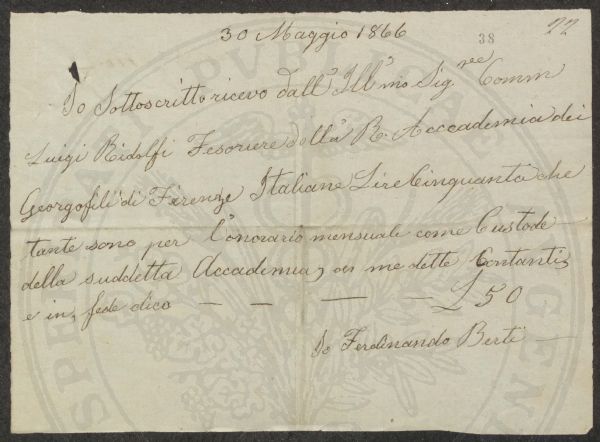 30 Maggio 1866
38
22
Io Sottoscritto ricevo dall' Ill.mo Sig.re Comm
Luigi Ridolfi Tesoriere della R. Accademia dei
Georgofili di Firenze Italiane Lire Cinquanta che
tante sono per l'onorario mensuale come Custode
della suddetta Accademia, a me dette Contanti,
e in fede dico — — — — £ 50
Io Ferdinando Berti